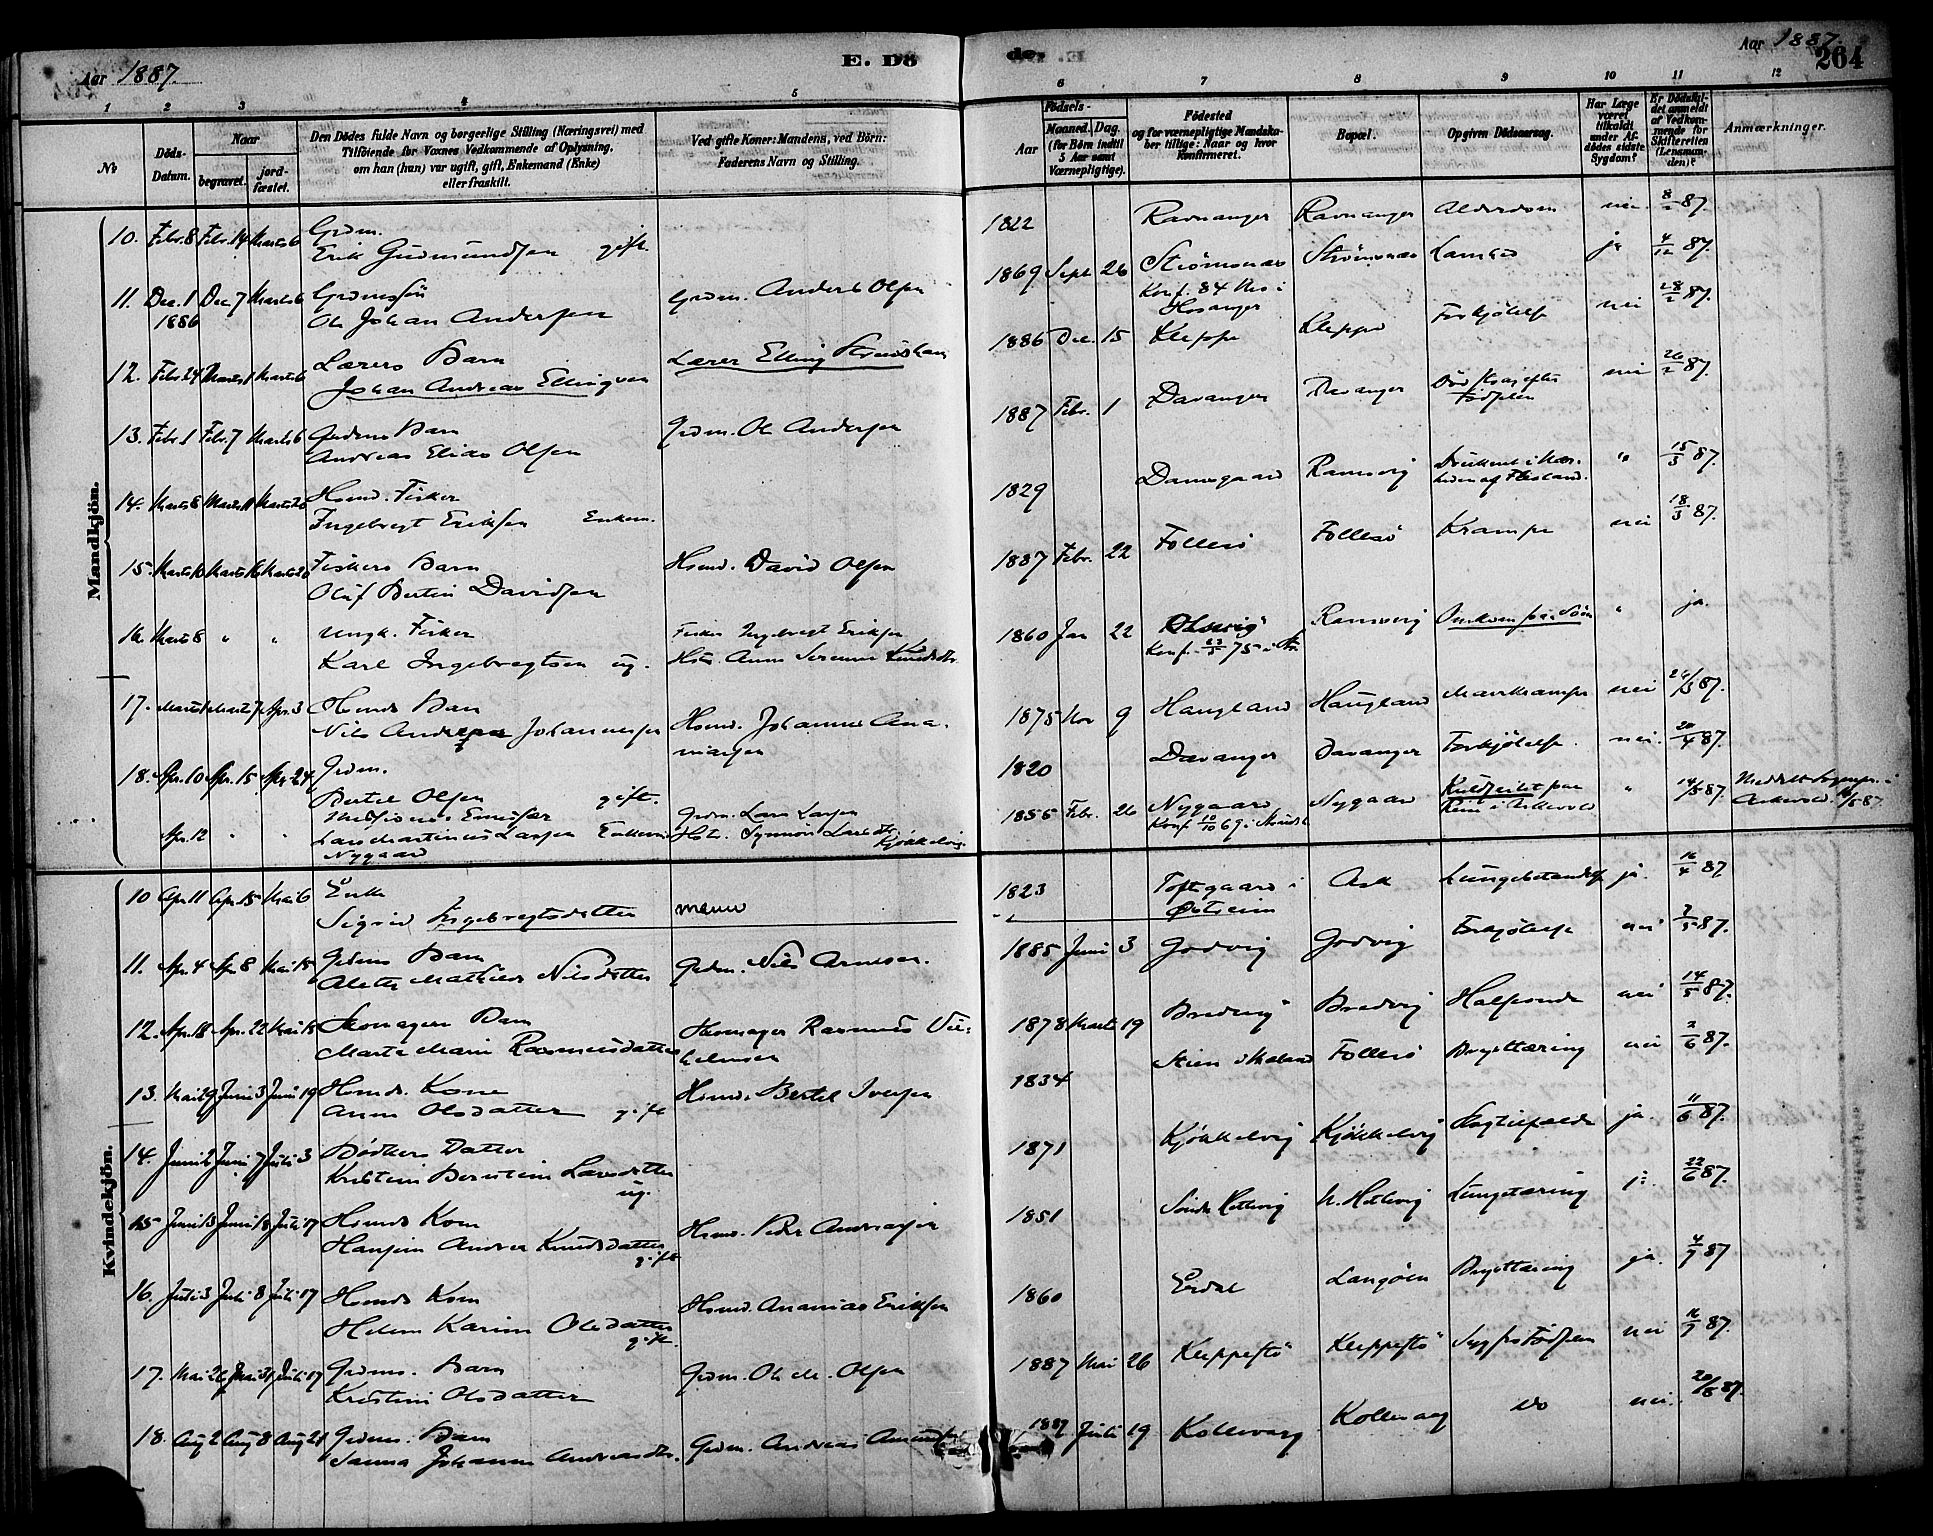 Aar 1887.
E. Dö
de.
Aar 1887.
264
1 2 3 4 5 6 7 8 9 10 11 12
No
Döds-Datum.
Naar
begravet.
jord-fæstet.
Den Dödes fulde Navn og borgerlige Stilling (Næringsvei) med
Tilföiende for Voxnes Vedkommende af Oplysning,
om han (hun) var ugift, gift, Enkemand (Enke)
eller fraskilt.
Ved gifte Koner: Mandens, ved Börn:
Faderens Navn og Stilling.
Födsels-
Aar
Maaned. Dag.
(for Börn indtil
5 Aar samt
Værnepligtige).
Födested
og for værnepligtige Mandska-
ber tillige: Naar og hvor
Konfirmeret.
Bopæl.
Opgiven Dödsaarsag.
Har Læge
været
tilkaldt
under Af-
dödes sidste
Sygdom?
Er Dödsfal-
det anmeldt
af Vedkom-
mende for
Skifteretten
(Lensman-
den)?
Anmærkninger.
Mandkjön.
10. Febr. 8 Febr. 14 Marts 6 Grdm.
Erik Gudmundsen gift
1822 Ravnanger Ravnanger Alderdom nei 8/2 87.
11. Dec. 1 Dec 7 Marts 6
1886
Ole Johan Andersen
Grdm. Anders Olsen
1869 Sept 26 Strömsnes Strömsnes ja 4/12 87.
Konf. 84 i
Hosanger
12. Febr. 24 Marts 1 Marts 6 Lærers Barn
Johan Andreas Ellingsen
Lærer Elling
1886 Dec. 15 Kleppe Kleppe Forkjölelse nei 28/2 87.
13. Febr. 1 Febr. 7 Marts 6 Grdms Barn
Andreas Elias Olsen
Grdm. Ole Andersen
1887 Febr. 1 Davanger Davanger Död strax efter
Födselen nei 26/2 87.
14. Marts 8 Marts 11 Marts 20 Hsmd. Fisker
Ingebregt Eriksen Enkem.
1829 Damsgaard Ramsvig Druknet i Nær-
heden af Flesland. " 15/3 87.
15. Marts 10 Marts 16 Marts 20 Fiskers Barn
Oluf Bertin Davidsen
Hsmd. David Olsen
1887 Febr. 22 Follesö Follesö Krampe nei 18/3 87.
16. Marts 8 " " Ungk. Fisker
Karl Ingebregtsen ug.
Fisker Ingebregt Eriksen
Anna Serena Knudsdtr.
1860 Jan 22 Ramsvig " ja.
Konf. 75 i
17. Marts 7 Apr. 3 Hsmds Barn
Nils Andreas Johannessen
Hsmd. Johannes Ana-
niassen
1875 Nov 9 Haugland Haugland nei 87.
18. Apr. 10 Apr. 15 Apr. 24 Grdm.
Bertel Olsen gift.
1820 Davanger Davanger Forkjölelse. nei. 20/4 87.
Apr. 12 " "
Lars Martinius Larsen Enkem.
Nygaard
Grdm. Lars Larsen
Synnöve Larsdtr
Kjökkelvig.
1855 Febr. 26 Nygaard Nygaard Kuldseilet paa " 14/5 87
Konf. 10/10 69 i
Kvindekjön.
10 Apr 11 Apr. 15 Mai 6 Enke
Sigrid Ingebregtsdatter
1823 Toftegaard i Ask Lungebetændelse ja. 16/4 87
11. Apr. 4 Apr 8 Mai 15 Grdms Barn
Alette Mathilde Nilsdatter
Grdm. Nils Arnesen.
1885 Juni 3 Godvig Godvig Forkjölelse nei 2/5 87.
12. Apr. 18 Apr. 22 Mai 15 Skomagers Barn
Marta Maria Rasmusdatter
Skomager Rasmus Vil-
helmsen
1878 Marts 19 Bredvig Bredvig Halsonde nei 14/5 87.
13. Mai 29 Juni 3 Juni 19 Hsmds. Kone
Anna Olsdatter gift
Hsmd. Bertel Iversen
1834 Follesö Brysttæring nei 2/6 87.
14. Juni 2 Juni 7 Juli 3 Bödkers Datter
Kristine Berntine Larsdatter
ug.
1871 Kjökkelvig Kjökkelvig ja 11/6 87.
15 Juni 13 Juni 18 Juli 17 Hsmds Kone
Hansine Andrea Knudsdatter
gift
Hsmd. Peder Andreassen
1851 Söndre Hetlevig N. Hetlevig Lungetæring ja. 22/6 87.
16. Juli 3 Juli 8 Juli 17 Hsmds Kone
Helene Karine Olsdatter
gift.
Hsmd. Ananias Eriksen
1860 Erdal Langöen Brysttæring ja. 4/7 87
17. Mai 26 Mai 31 Juli 17 Grdms. Barn
Kristine Olsdatter
Grdm. Ole M. Olsen
1887 Mai 26 Kleppestö Kleppestö Syg fra Födselen nei 16/7 87.
18. Aug 2 Aug 8 Aug 21 Grdms. Barn
Sanna Johanna Andreasdtr.
Grdm. Andreas
1887 Juli 19 Kollevaag Kollevaag do nei. 20/8 87.